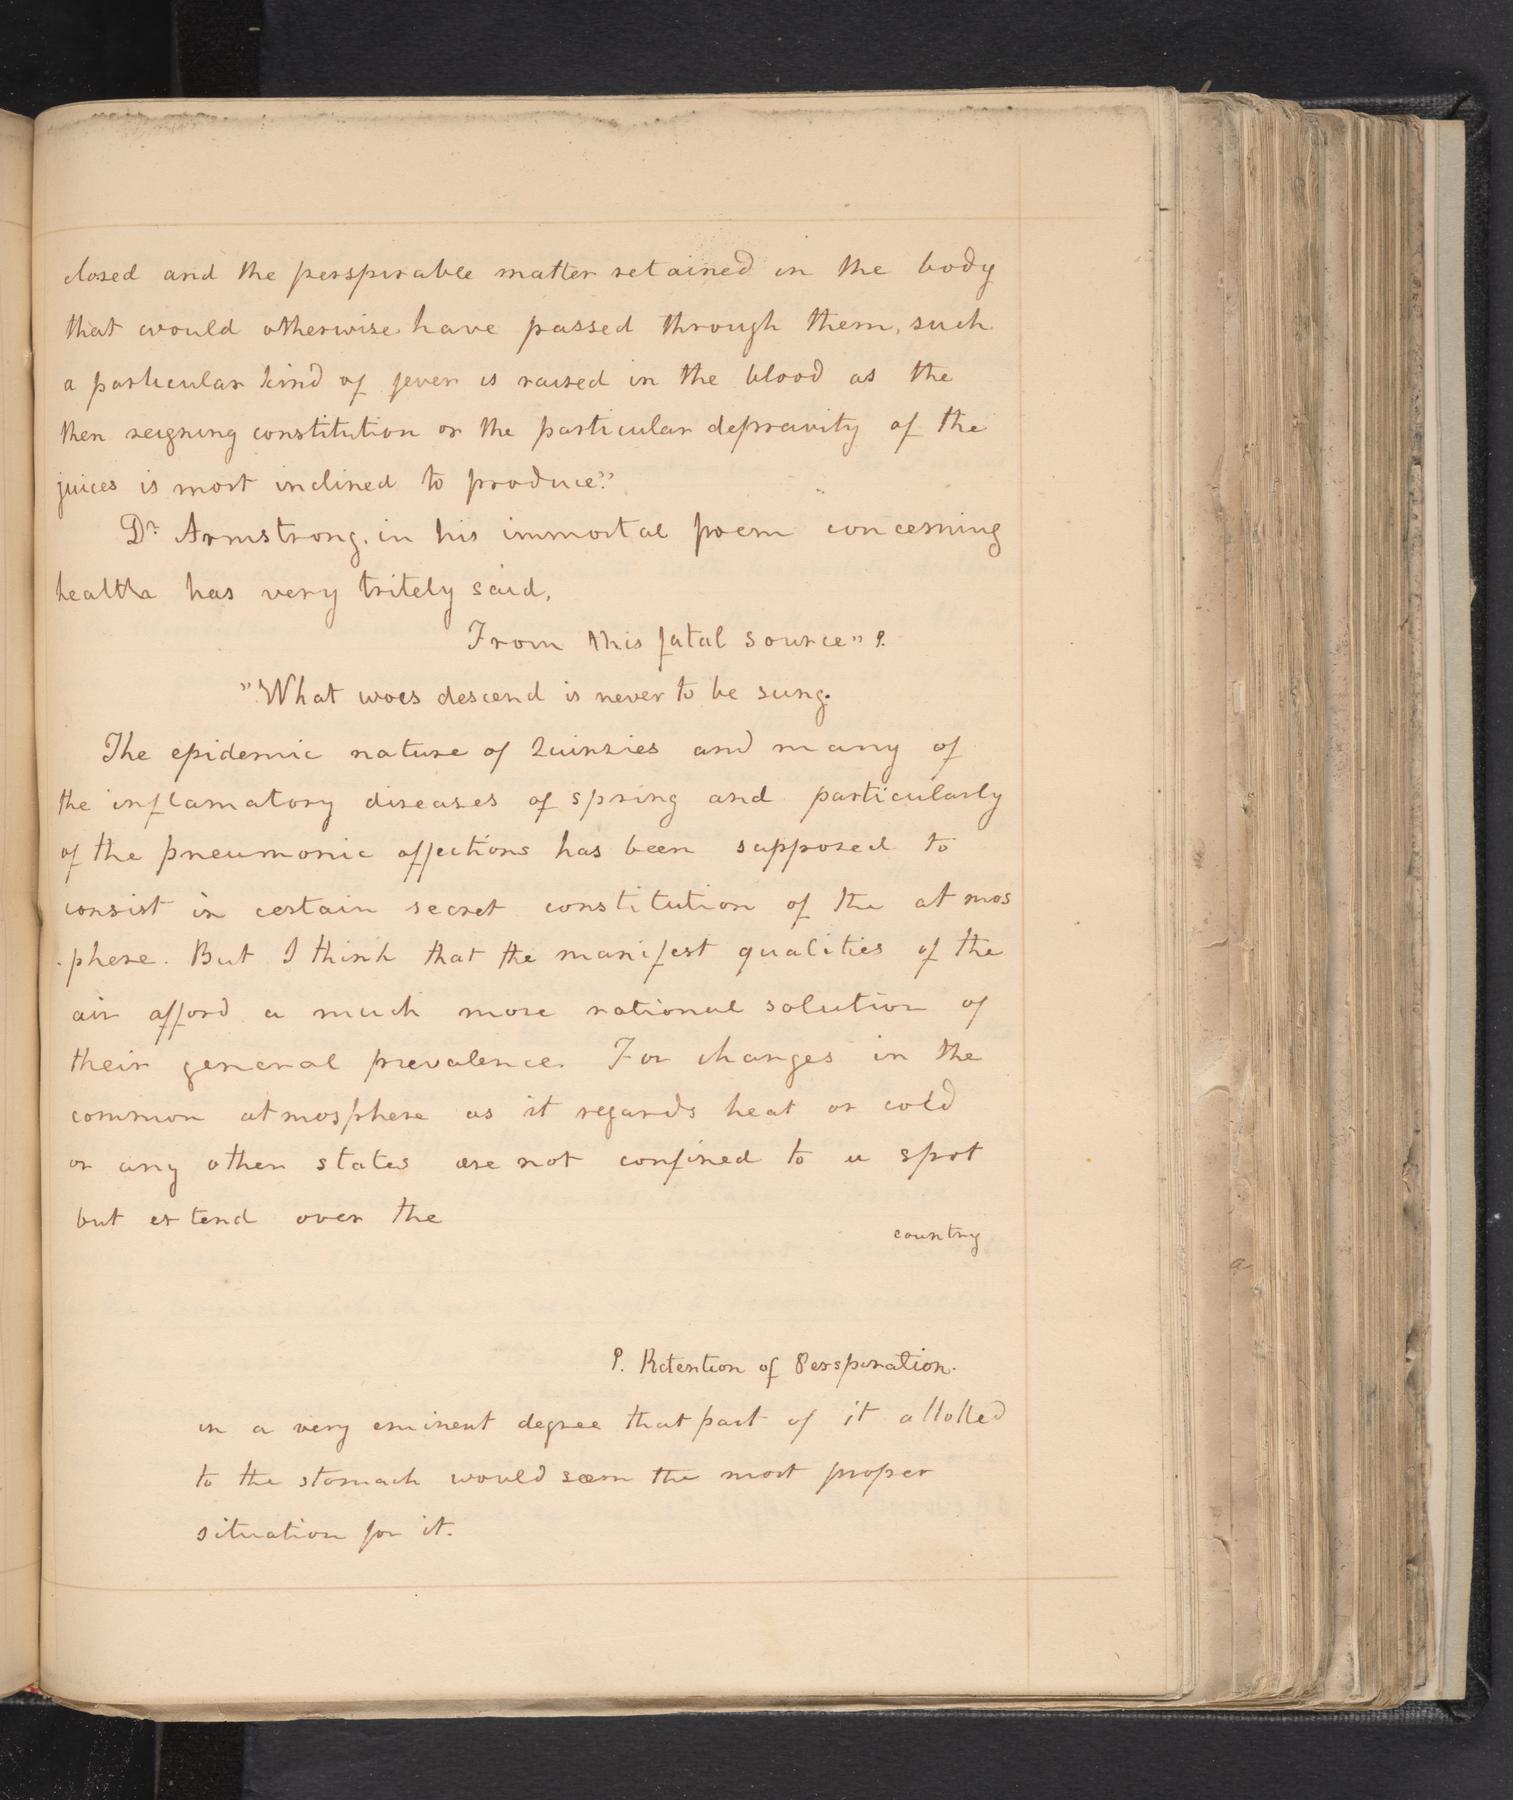 closed and the perspirable matter retained in the body
that would otherwise have passed through them, such
a particular kind of fever is raised in the blood as the
then reigning constitution or the particular depravity of the
juices is most inclined to produce."
Dr. Armstrong. in his immortal poem concerning
health has very tritely said,
From this fatal source" P.
"What woes descend is never to be sung.
The epidemic nature of Quinsies and many of
the inflamatory diseases of spring and particularly
of the pneumonic affections has been supposed to
consist in certain secret constitution of the atmos
-phere. But I think that the manifest qualities of the
air afford a much more rational solution of
their general prevalence. For changes in the
common atmosphere as it regards heat or cold
or any other states are not confined to a spot
but extend over the
country
P. Retention of Perspiration.
in a very eminent degree that part of it allotted
to the stomach would seem the most proper
situation for it.